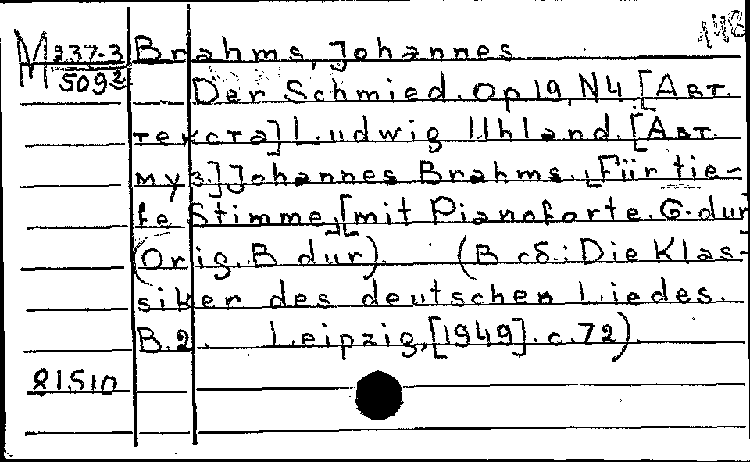 148
M 237-3 Brahms, Johannes
5092 Der Schmied. Op 19, N4. [Авт.
текста] Ludwig Uhland. [Авт.
муз.] Johannes Brahms. [Für tie-
fe Stimme,] [mit Pianoforte. G-dur
(Orig. B dur) (В сб.: Die Klas-
siker des deutschen Liedes.
B. 2. Leipzig, [1949]. c. 72)
81510